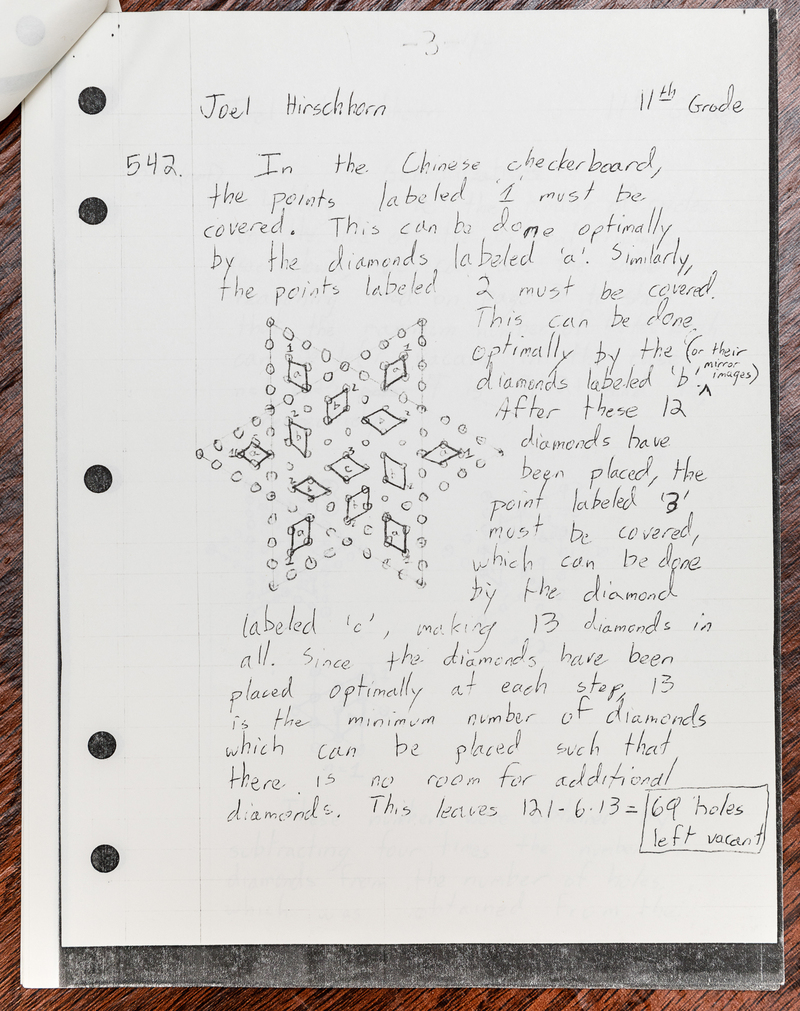 -3-
Joel Hirschhorn 11th Grade
542. In the Chinese checkerboard,
the points labeled '1' must be
covered. This can be done optimally
by the diamonds labeled 'a'. Similarly,
the points labeled '2 must be covered.
This can be done
optimally by the (or their
mirror
diamonds labeled 'b'. images)
After these 12
diamonds have
been placed, the
point labeled '3'
must be covered,
which can be done
by the diamond
labeled 'c', making 13 diamonds in
all. Since the diamonds have been
placed optimally at each step, 13
is the minimum number of diamonds
which can be placed such that
there is no room for additional
diamonds. This leaves 121-6·13= 69 holes
left vacant